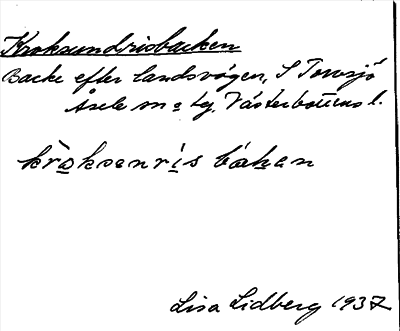 Kroksundrisbacken
Backe efter landsvägen, S Torvsjö
Åsele sn o tg. Västerbottens l.
kròksenrís bàken
Lisa Lidberg 1937